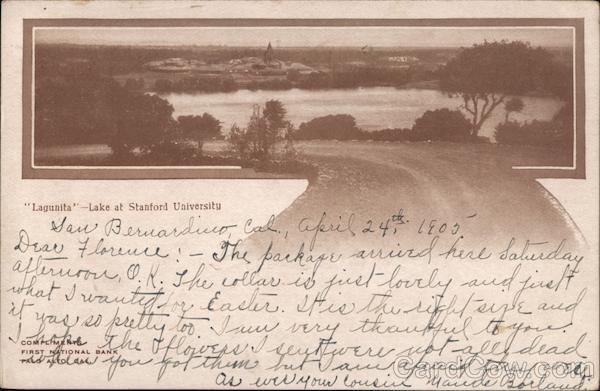 "Lagunita"—Lake at Stanford University
San Bernardino, Cal., April 24th, 1905
Dear Florence:- The package arrived here Saturday
afternoon, O.K. The collar is just lovely and just
what I wanted for Easter. It is the right size and
it was so pretty too I am very thankful to you.
I hope the flowers I sent were not all dead
when you got them but I am
As ever your cousin
COMPLIMENTS
FIRST NATIONAL BANK
PALO ALTO, CAL.
CardCow.com